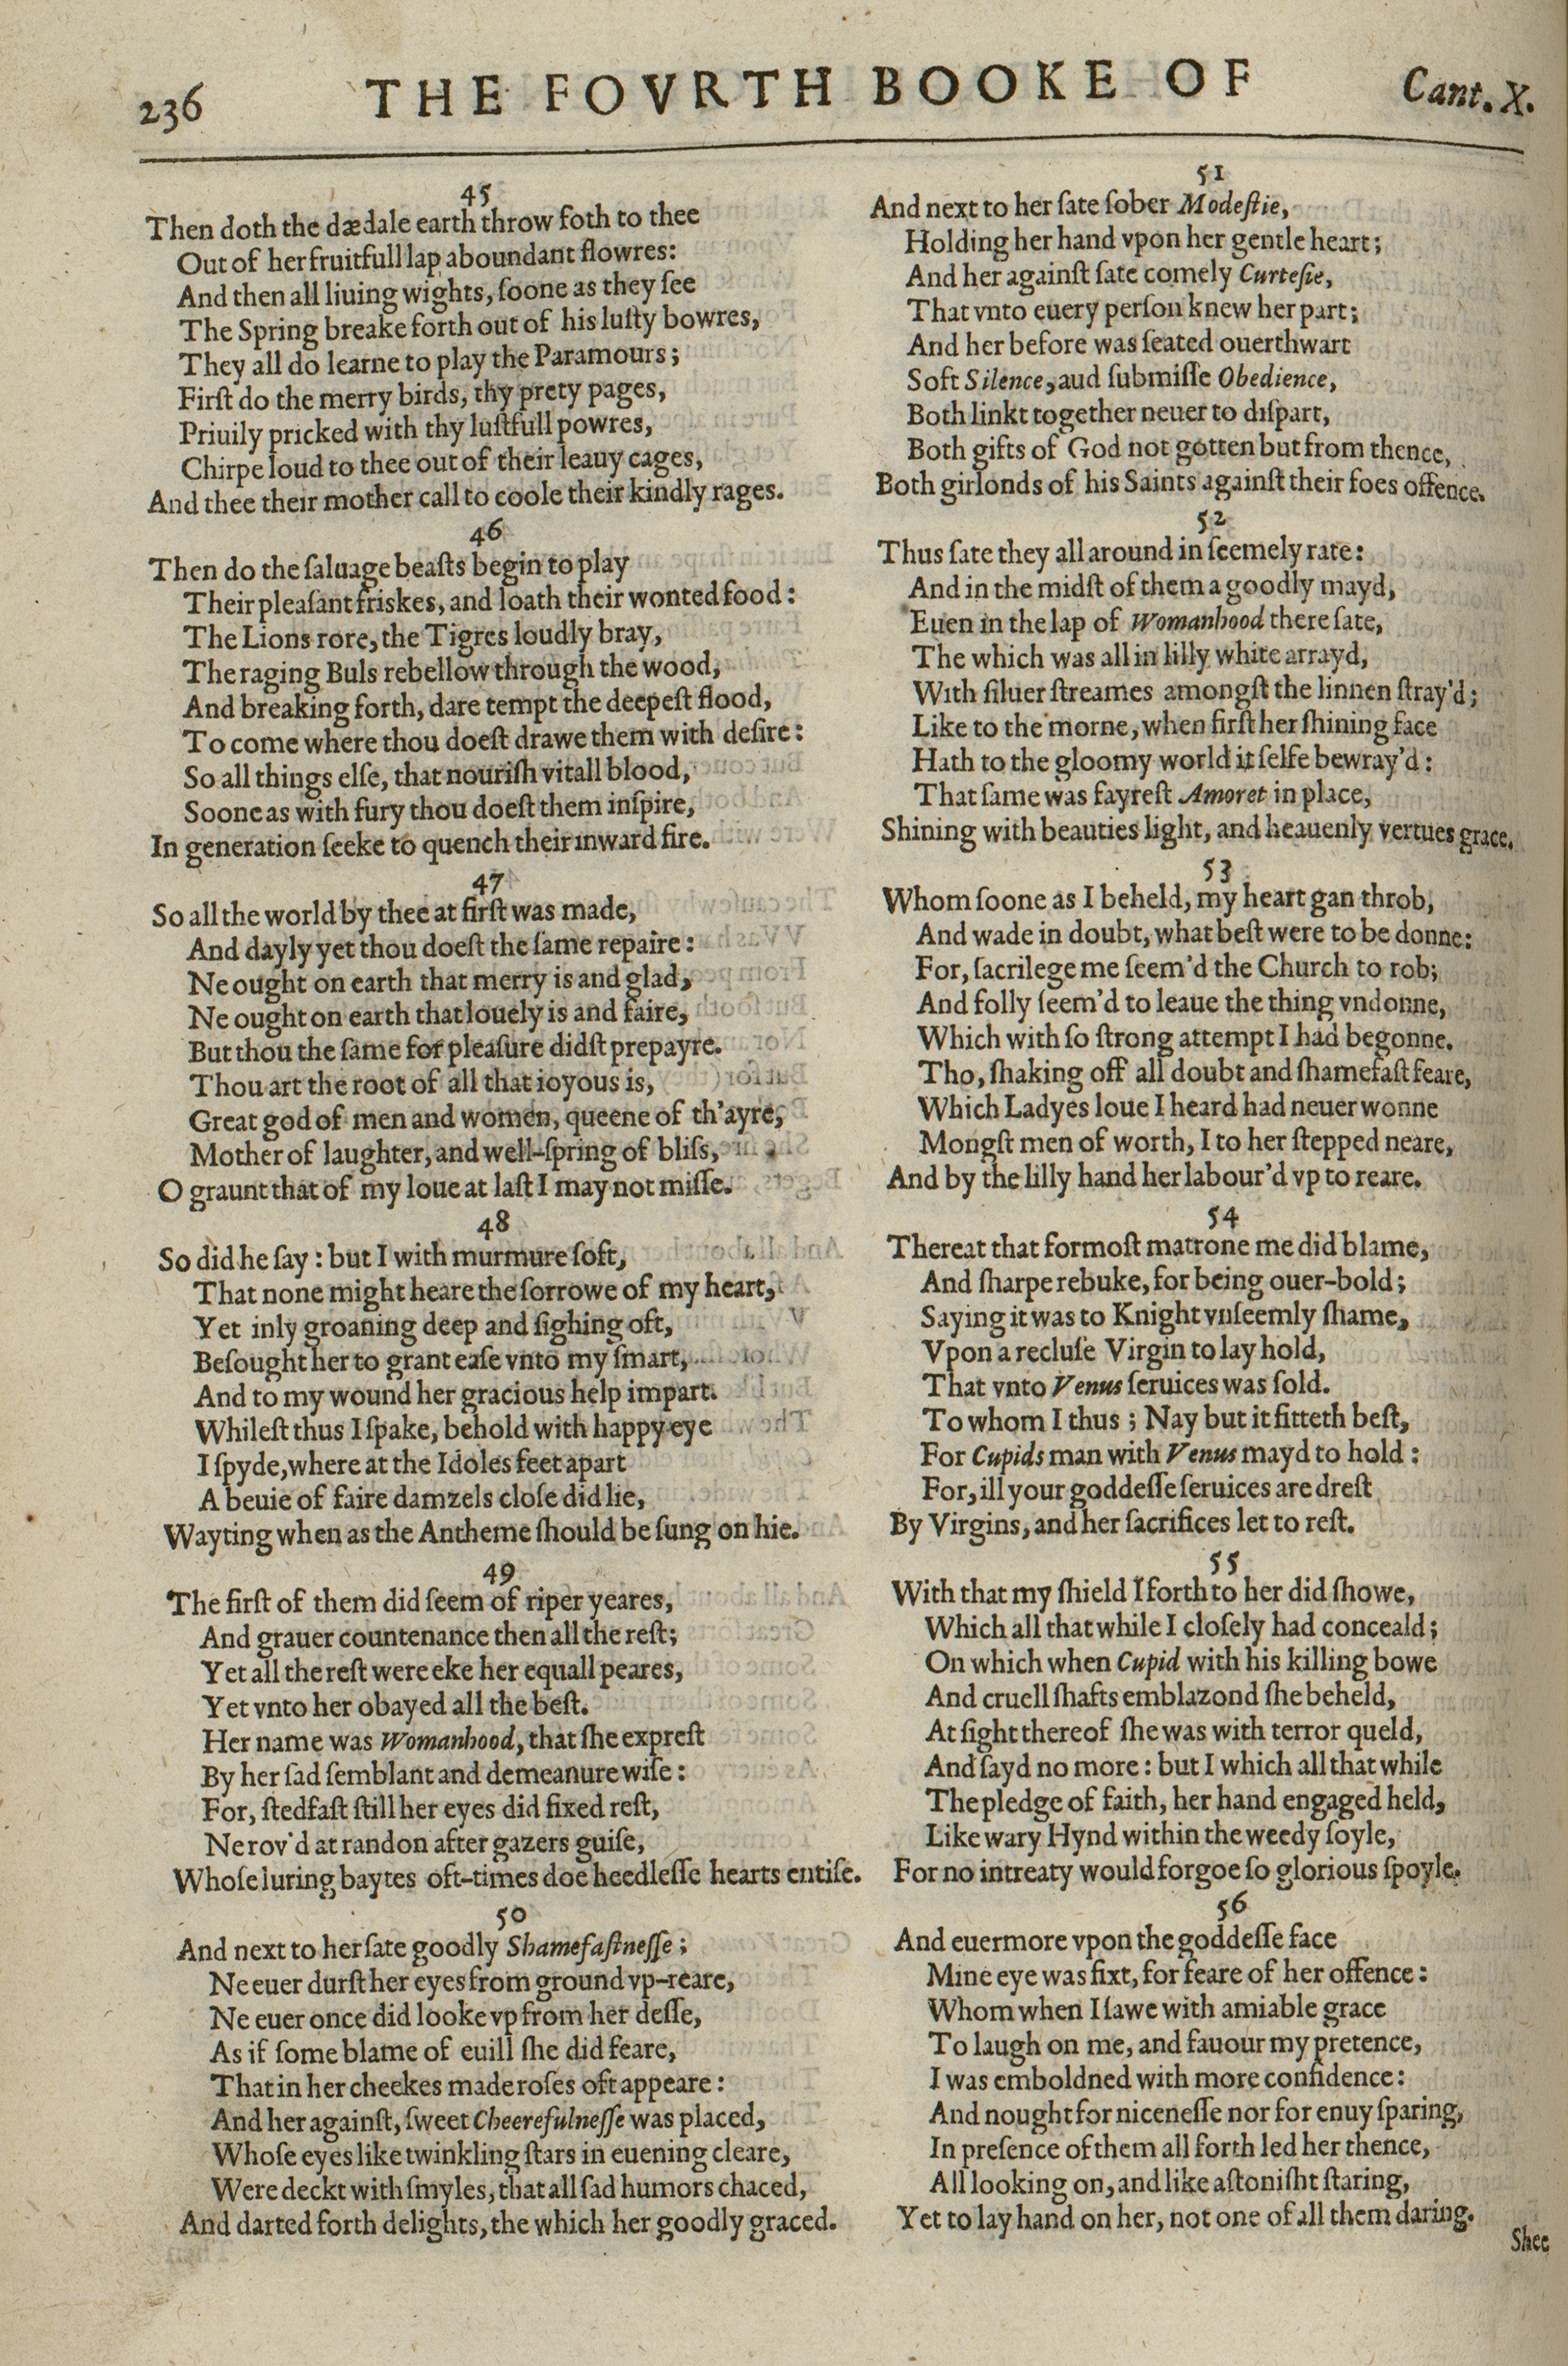 236 THE FOVRTH BOOKE OF Cant. X.
45
Then doth the dædale earth throw foth to thee
Out of her fruitfull lap aboundant flowres:
And then all liuing wights, ſoone as they ſee
The Spring breake forth out of his luſty bowres,
They all do learne to play the Paramours;
Firſt do the merry birds, thy prety pages,
Priuily pricked with thy luſtfull powres,
Chirpe loud to thee out of their leauy cages,
And thee their mother call to coole their kindly rages.
46
Then do the ſaluage beaſts begin to play
Their pleaſant friskes, and loath their wonted food:
The Lions rore, the Tigres loudly bray,
The raging Buls rebellow through the wood,
And breaking forth, dare tempt the deepeſt flood,
To come where thou doeſt drawe them with deſire:
So all things elſe, that nouriſh vitall blood,
Soone as with fury thou doeſt them inſpire,
In generation ſeeke to quench their inward fire.
47
So all the world by thee at firſt was made,
And dayly yet thou doeſt the ſame repaire:
Ne ought on earth that merry is and glad,
Ne ought on earth that louely is and faire,
But thou the ſame for pleaſure didſt prepayre.
Thou art the root of all that ioyous is,
Great god of men and women, queene of th'ayre,
Mother of laughter, and well-ſpring of bliſs,
O graunt that of my loue at laſt I may not miſſe.
48
So did he ſay: but I with murmure ſoft,
That none might heare the ſorrowe of my heart,
Yet inly groaning deep and ſighing oft,
Beſought her to grant eaſe vnto my ſmart,
And to my wound her gracious help impart.
Whileſt thus I ſpake, behold with happy eye
I ſpyde, where at the Idoles feet apart
A beuie of faire damzels cloſe did lie,
Wayting when as the Antheme ſhould be ſung on hie.
49
The firſt of them did ſeem of riper yeares,
And grauer countenance then all the reſt;
Yet all the reſt were eke her equall peares,
Yet vnto her obayed all the beſt.
Her name was Womanhood, that ſhe expreſt
By her ſad ſemblant and demeanure wiſe:
For, ſtedfaſt ſtill her eyes did fixed reſt,
Ne rov'd at randon after gazers guiſe,
Whoſe luring baytes oft-times doe heedleſſe hearts entiſe.
50
And next to her ſate goodly Shamefaſtneſſe;
Ne euer durſt her eyes from ground vp-reare,
Ne euer once did looke vp from her deſſe,
As if ſome blame of euill ſhe did feare,
That in her cheekes made roſes oft appeare:
And her againſt, ſweet Cheerefulneſſe was placed,
Whoſe eyes like twinkling ſtars in euening cleare,
Were deckt with ſmyles, that all ſad humors chaced,
And darted forth delights, the which her goodly graced.
51
And next to her ſate ſober Modeſtie,
Holding her hand vpon her gentle heart;
And her againſt ſate comely Curteſie,
That vnto euery perſon knew her part;
And her before was ſeated ouerthwart
Soft Silence, aud ſubmiſſe Obedience,
Both linkt together neuer to diſpart,
Both gifts of God not gotten but from thence,
Both girlonds of his Saints againſt their foes offence.
52
Thus ſate they all around in ſeemely rate:
And in the midſt of them a goodly mayd,
Euen in the lap of Womanhood there ſate,
The which was all in lilly white arrayd,
With ſiluer ſtreames amongſt the linnen ſtray'd;
Like to the morne, when firſt her ſhining face
Hath to the gloomy world it ſelfe bewray'd:
That ſame was fayreſt Amoret in place,
Shining with beauties light, and heauenly vertues grace.
53
Whom ſoone as I beheld, my heart gan throb,
And wade in doubt, what beſt were to be donne:
For, ſacrilege me ſeem'd the Church to rob;
And folly ſeem'd to leaue the thing vndonne,
Which with ſo ſtrong attempt I had begonne.
Tho, ſhaking off all doubt and ſhamefaſt feare,
Which Ladyes loue I heard had neuer wonne
Mongſt men of worth, I to her ſtepped neare,
And by the lilly hand her labour'd vp to reare.
54
Thereat that formoſt matrone me did blame,
And ſharpe rebuke, for being ouer-bold;
Saying it was to Knight vnſeemly ſhame,
Vpon a recluſe Virgin to lay hold,
That vnto Venus ſeruices was ſold.
To whom I thus; Nay but it fitteth beſt,
For Cupids man with Venus mayd to hold:
For, ill your goddeſſe ſeruices are dreſt
By Virgins, and her ſacrifices let to reſt.
55
With that my ſhield I forth to her did ſhowe,
Which all that while I cloſely had conceald;
On which when Cupid with his killing bowe
And cruell ſhafts emblazond ſhe beheld,
At ſight thereof ſhe was with terror queld,
And ſayd no more: but I which all that while
The pledge of faith, her hand engaged held,
Like wary Hynd within the weedy ſoyle,
For no intreaty would forgoe ſo glorious ſpoyle.
56
And euermore vpon the goddeſſe face
Mine eye was fixt, for feare of her offence:
Whom when I ſawe with amiable grace
To laugh on me, and fauour my pretence,
I was emboldned with more confidence:
And nought for niceneſſe nor for enuy ſparing,
In preſence of them all forth led her thence,
All looking on, and like aſtoniſht ſtaring,
Yet to lay hand on her, not one of all them daring.
Shee